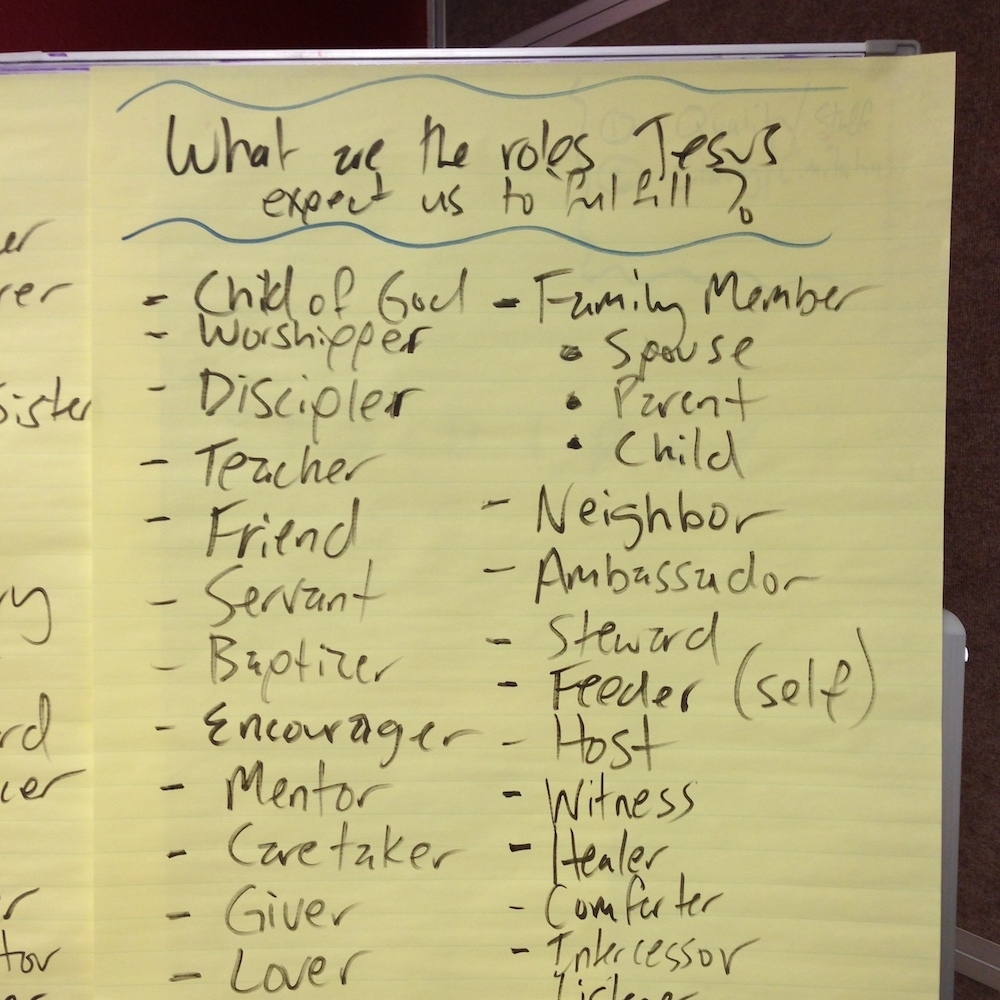 What are the roles Jesus
expect us to fulfill?
- Child of God
- Worshipper
- Discipler
- Teacher
- Friend
- Servant
- Baptizer
- Encourager
- Mentor
- Caretaker
- Giver
- Lover
- Family Member
• Spouse
• Parent
• Child
- Neighbor
- Ambassador
- Steward
- Feeder (self)
- Host
- Witness
- Healer
- Comforter
- Intercessor
Listener
Sister